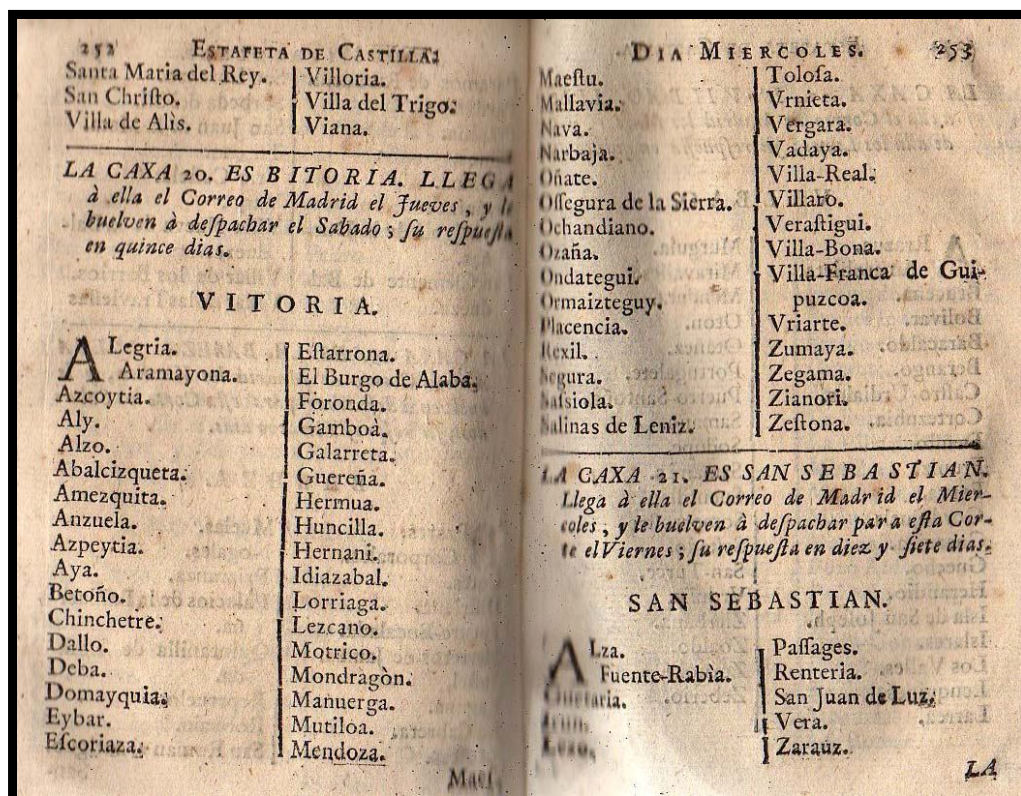 252 ESTAFETA DE CASTILLA:
Santa Maria del Rey.
San Chriſto.
Villa de Alìs.
Villoria.
Villa del Trigo:
Viana.
LA CAXA 20. ES BITORIA. LLEGA
à ella el Correo de Madrid el Jueves, y le
buelven à deſpachar el Sabado; ſu reſpueſta
en quince dias.
VITORIA.
ALegria.
Aramayona.
Azcoytia.
Aly.
Alzo.
Abalcizqueta.
Amezquita.
Anzuela.
Azpeytia.
Aya.
Betoño.
Chinchetre.
Dallo.
Deba.
Domayquia;
Eybar.
Eſcoriaza.
Eſtarrona.
El Burgo de Alaba.
Foronda.
Gamboa.
Galarreta.
Guereña.
Hermua.
Huncilla.
Hernani.
Idiazabal.
Lorriaga.
Lezcano.
Motrico.
Mondragòn.
Manuerga.
Mutiloa.
Mendoza.
Maeſ
DIA MIERCOLES. 253
Maeſtu.
Mallavia.
Nava.
Narbaja.
Oñate.
Oſſegura de la Sierra.
Ochandiano.
Ozaña.
Ondategui.
Ormaizteguy.
Placencia.
Rexil.
Segura.
Saſsiola.
Salinas de Leniz.
Toloſa.
Vrnieta.
Vergara.
Vadaya.
Villa-Real.
Villaro.
Veraſtigui.
Villa-Bona.
Villa-Franca de Gui-
puzcoa.
Vriarte.
Zumaya.
Zegama.
Zianori.
Zeſtona.
LA CAXA 21. ES SAN SEBASTIAN.
Llega à ella el Correo de Madrid el Mier-
coles, y le buelven à deſpachar para eſta Cor-
te el Viernes; ſu reſpueſta en diez y ſiete dias.
SAN SEBASTIAN.
ALza.
Fuente-Rabìa.
Guetaria.
Irun.
Lezo.
Paſſages.
Renteria.
San Juan de Luz.
Vera.
Zarauz.
LA